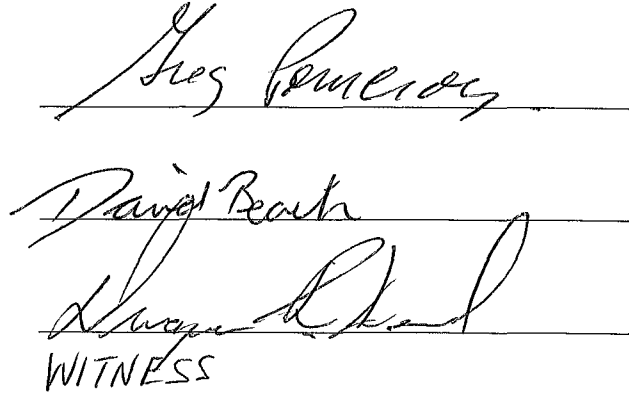 Greg Pomeroy
David Beach
Dwayne
WITNESS